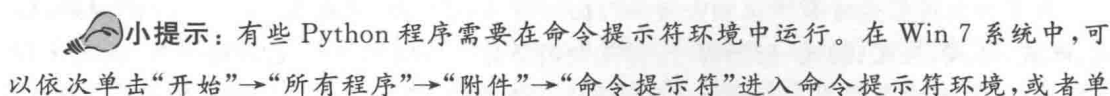 小提示：有些 Python 程序需要在命令提示符环境中运行。在 Win 7 系统中,可
以依次单击“开始”→“所有程序”→“附件”→“命令提示符”进入命令提示符环境,或者单